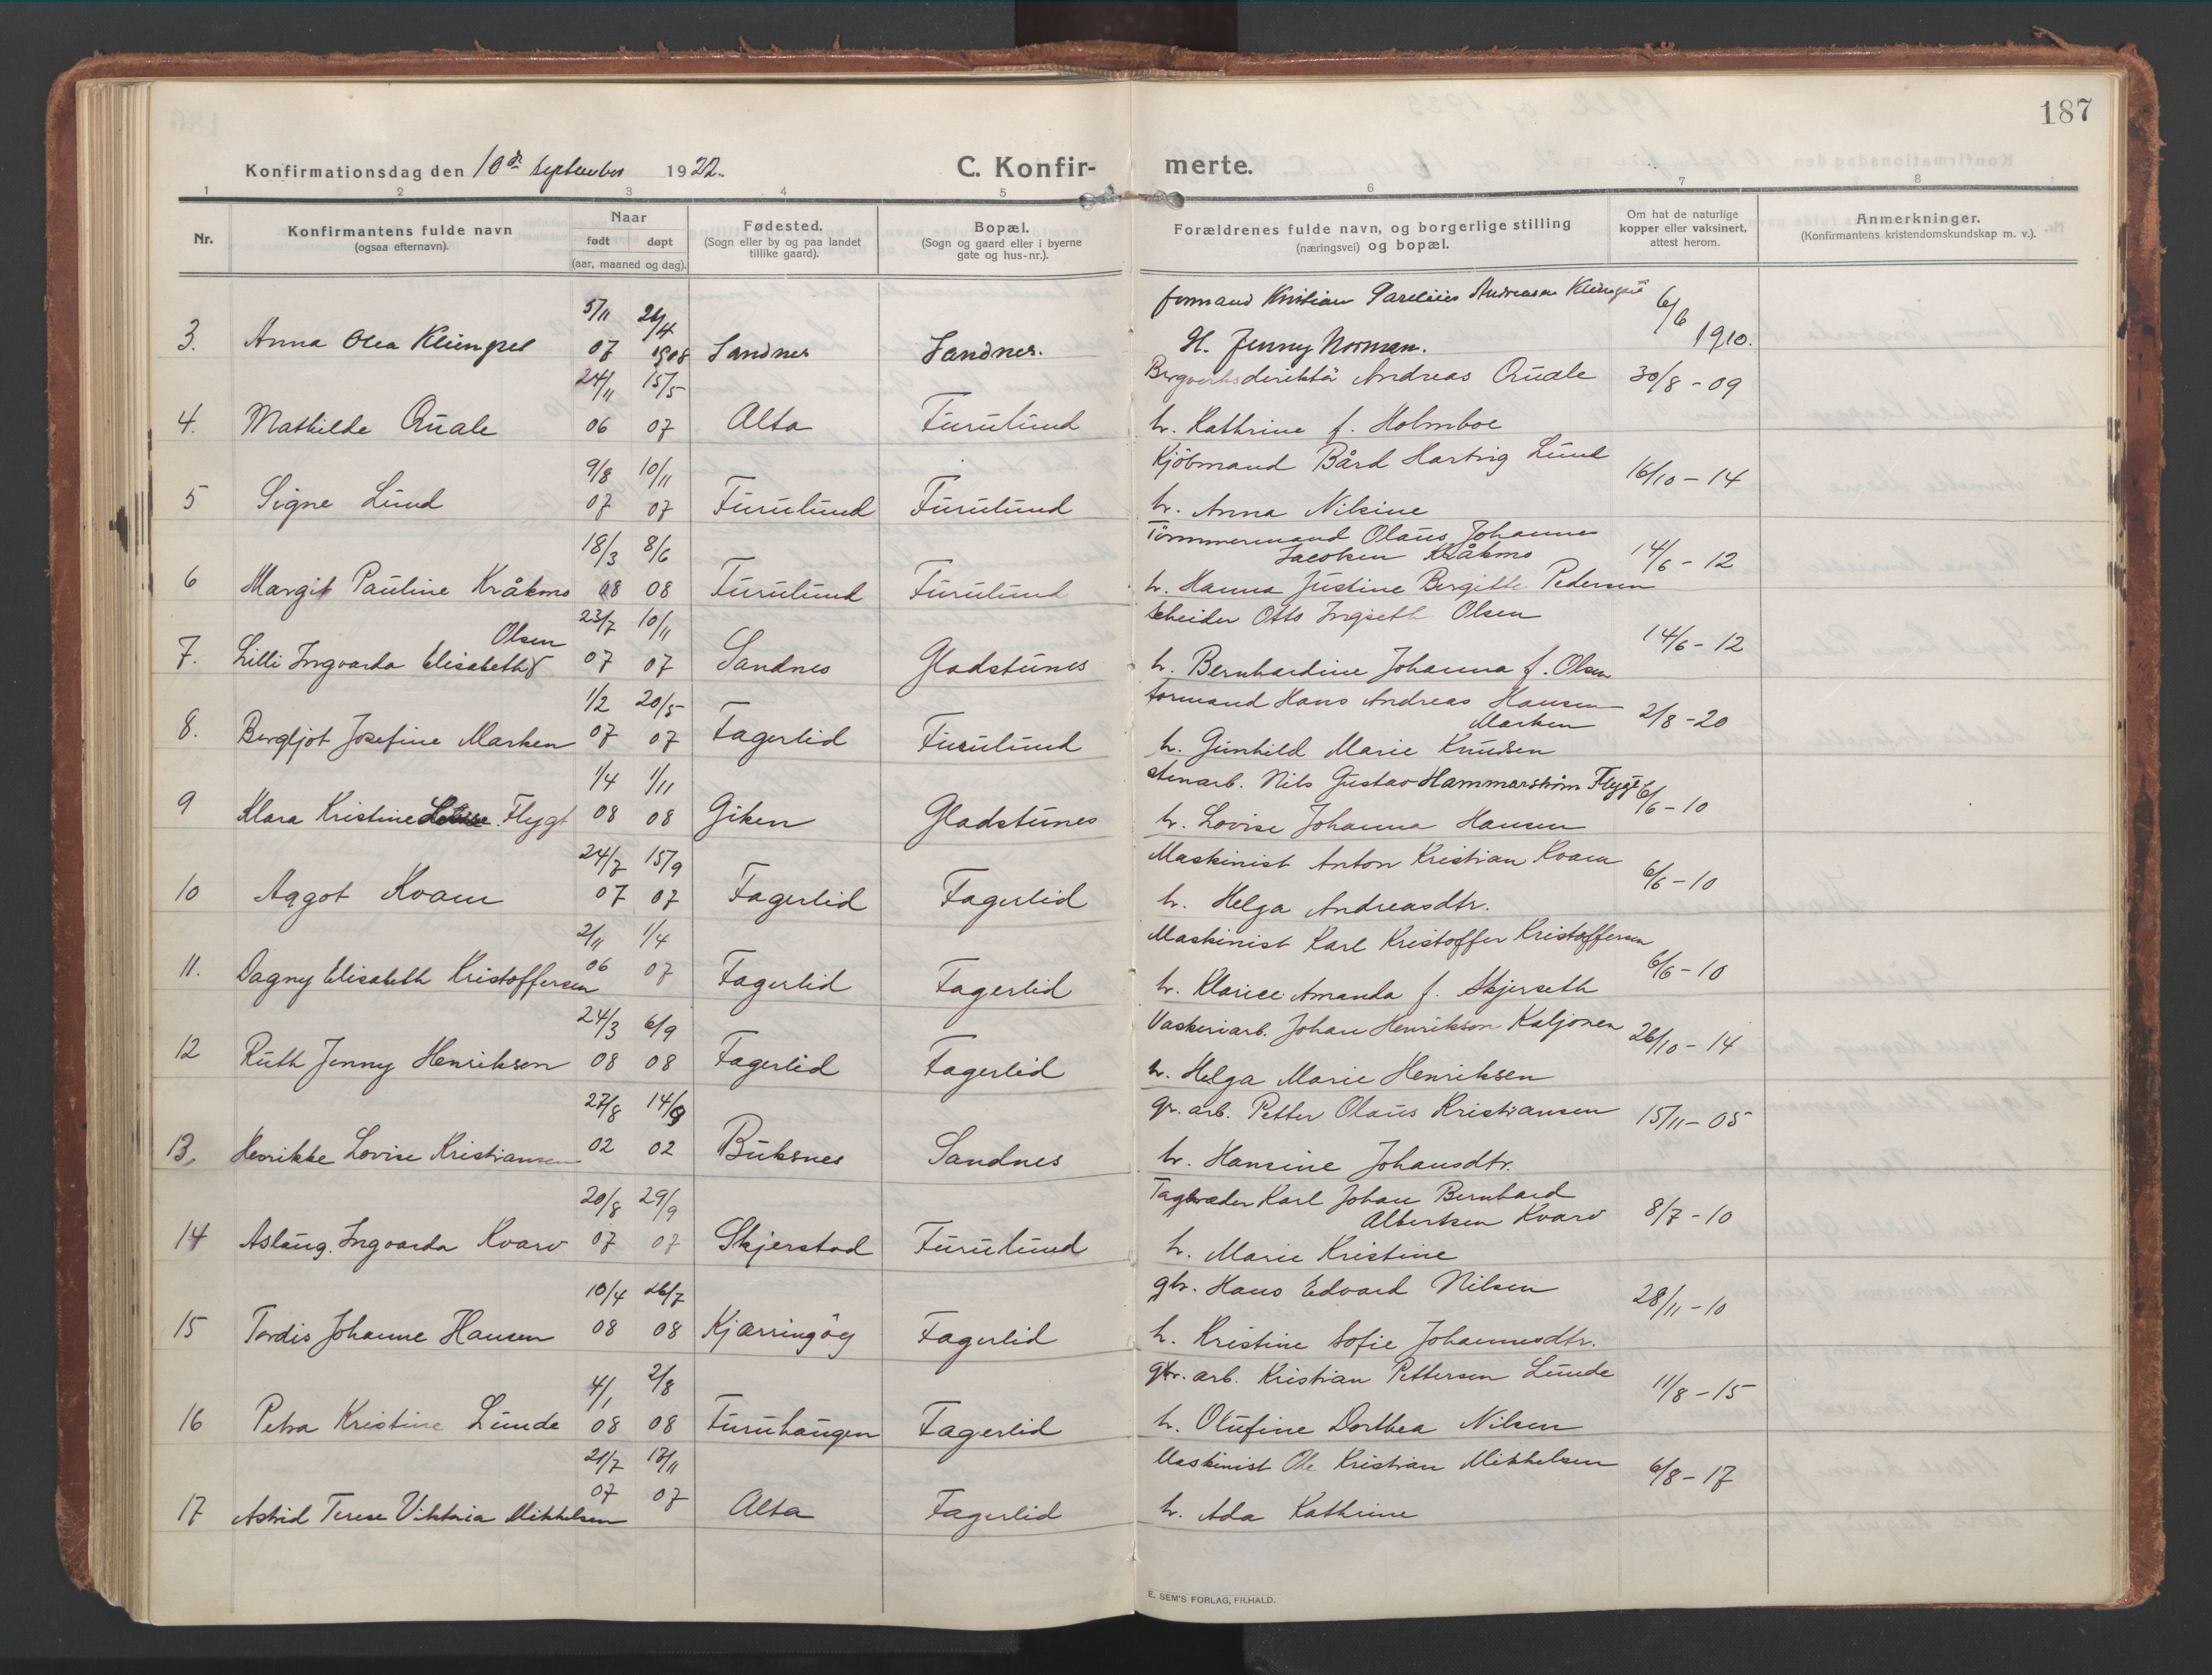 187
Konfirmationsdag den 10de september 1922. C. Konfir- merte.
1 2 3 4 5 6 7 8
Nr. Konfirmantens fulde navn (ogsaa efternavn). Naar født døpt (aar, maaned og dag). Fødested. (Sogn eller by og paa landet tillike gaard). Bopæl. (Sogn og gaard eller i byerne gate og hus-nr.). Forældrenes fulde navn, og borgerlige stilling (næringsvei) og bopæl. Om hat de naturlige kopper eller vaksinert, attest herom. Anmerkninger. (Konfirmantens kristendomskundskap m. v.).
5/11 26/4 formand Kristian Parelius Andreasen 6/6
3. Anna Olea 07 1908 Sandnes Sandnes. H. Jenny Norman. 1910.
24/11 15/5 Bergverksdirektör Andreas Quale 30/8 - 09
4. Mathilde Quale 06 07 Alta Furulund h. Kathrine f. Holmboe
9/8 10/11 Kjöbmand Bård Hartvig Lund 16/10 - 14
5 Signe Lund 07 07 Furulund Furulund h. Anna Nilsine
18/3 8/6 Tömmermand Olaus Johannes
Jacobsen Kråkmo 14/6 - 12
6 Margit Pauline Kråkmo 08 08 Furulund Furulund h. Hanna Justine Bergitte Pedersen
23/7 10/11 Scheider Otto Ingseth Olsen
Olsen 14/6 - 12
7. Lilli Ingvarda Elisabeth 07 07 Sandnes Gladstunes h. Bernhardine Johanna f. Olsen
1/2 20/5 formand Hans Andreas Hansen
Marken 2/8 - 20
8. Bergljot Josefine Marken 07 07 Fagerlid Furulund h. Gunhild Marie Knudsen
1/4 1/11 stenarb. Nils Gustav Hammarström Flygt 6/6 - 10
9 Klara Kristine Flygt 08 08 Giken Gladstunes h. Lovise Johanna Hansen
24/7 15/9 Maskinist Anton Kristian Kvam 6/6 - 10
10 Aagot Kvam 07 07 Fagerlid Fagerlid h. Helga Andreasdtr.
2/11 1/4 Maskinist Karl Kristoffer Kristoffersen 6/6 - 10
11. Dagny Elisabeth Kristoffersen 06 07 Fagerlid Fagerlid h. Klarice Amanda f. Skjerseth
24/3 6/9 Vaskeriarb. Johan Henrikson Kaljonen 26/10 - 14
12 Ruth Jenny Henriksen 08 08 Fagerlid Fagerlid h. Helga Marie Henriksen
27/8 14/9 gr. arb. Petter Olaus Kristiansen 15/11 - 05
13. Henrikke Lovise Kristiansen 02 02 Buksnes Sandnes h. Hansine Johansdtr.
20/8 29/9 Karl Johan Bernhard
Albertsen Kvarv 8/7 - 10
14 Aslaug Ingvarda Kvarv 07 07 Skjerstad Furulund h. Marie Kristine
10/4 26/7 gbr. Hans Edvard Nilsen 28/11 - 10
15 Tordis Johanne Hansen 08 08 Kjærringöy Fagerlid h. Kristine Sofie Johannesdtr.
4/1 2/8 gbr. arb. Kristian Pettersen Lunde 11/8 - 15
16 Petra Kristine Lunde 08 08 Furuhaugen Fagerlid h. Olufine Dorthea Nilsen
21/7 17/11 Maskinist Ole Kristian Mikkelsen 6/8 - 17
17 Astrid Terese Viktoria Mikkelsen 07 07 Alta Fagerlid h. Ada Kathrine
E. SEM'S FORLAG, FR.HALD.